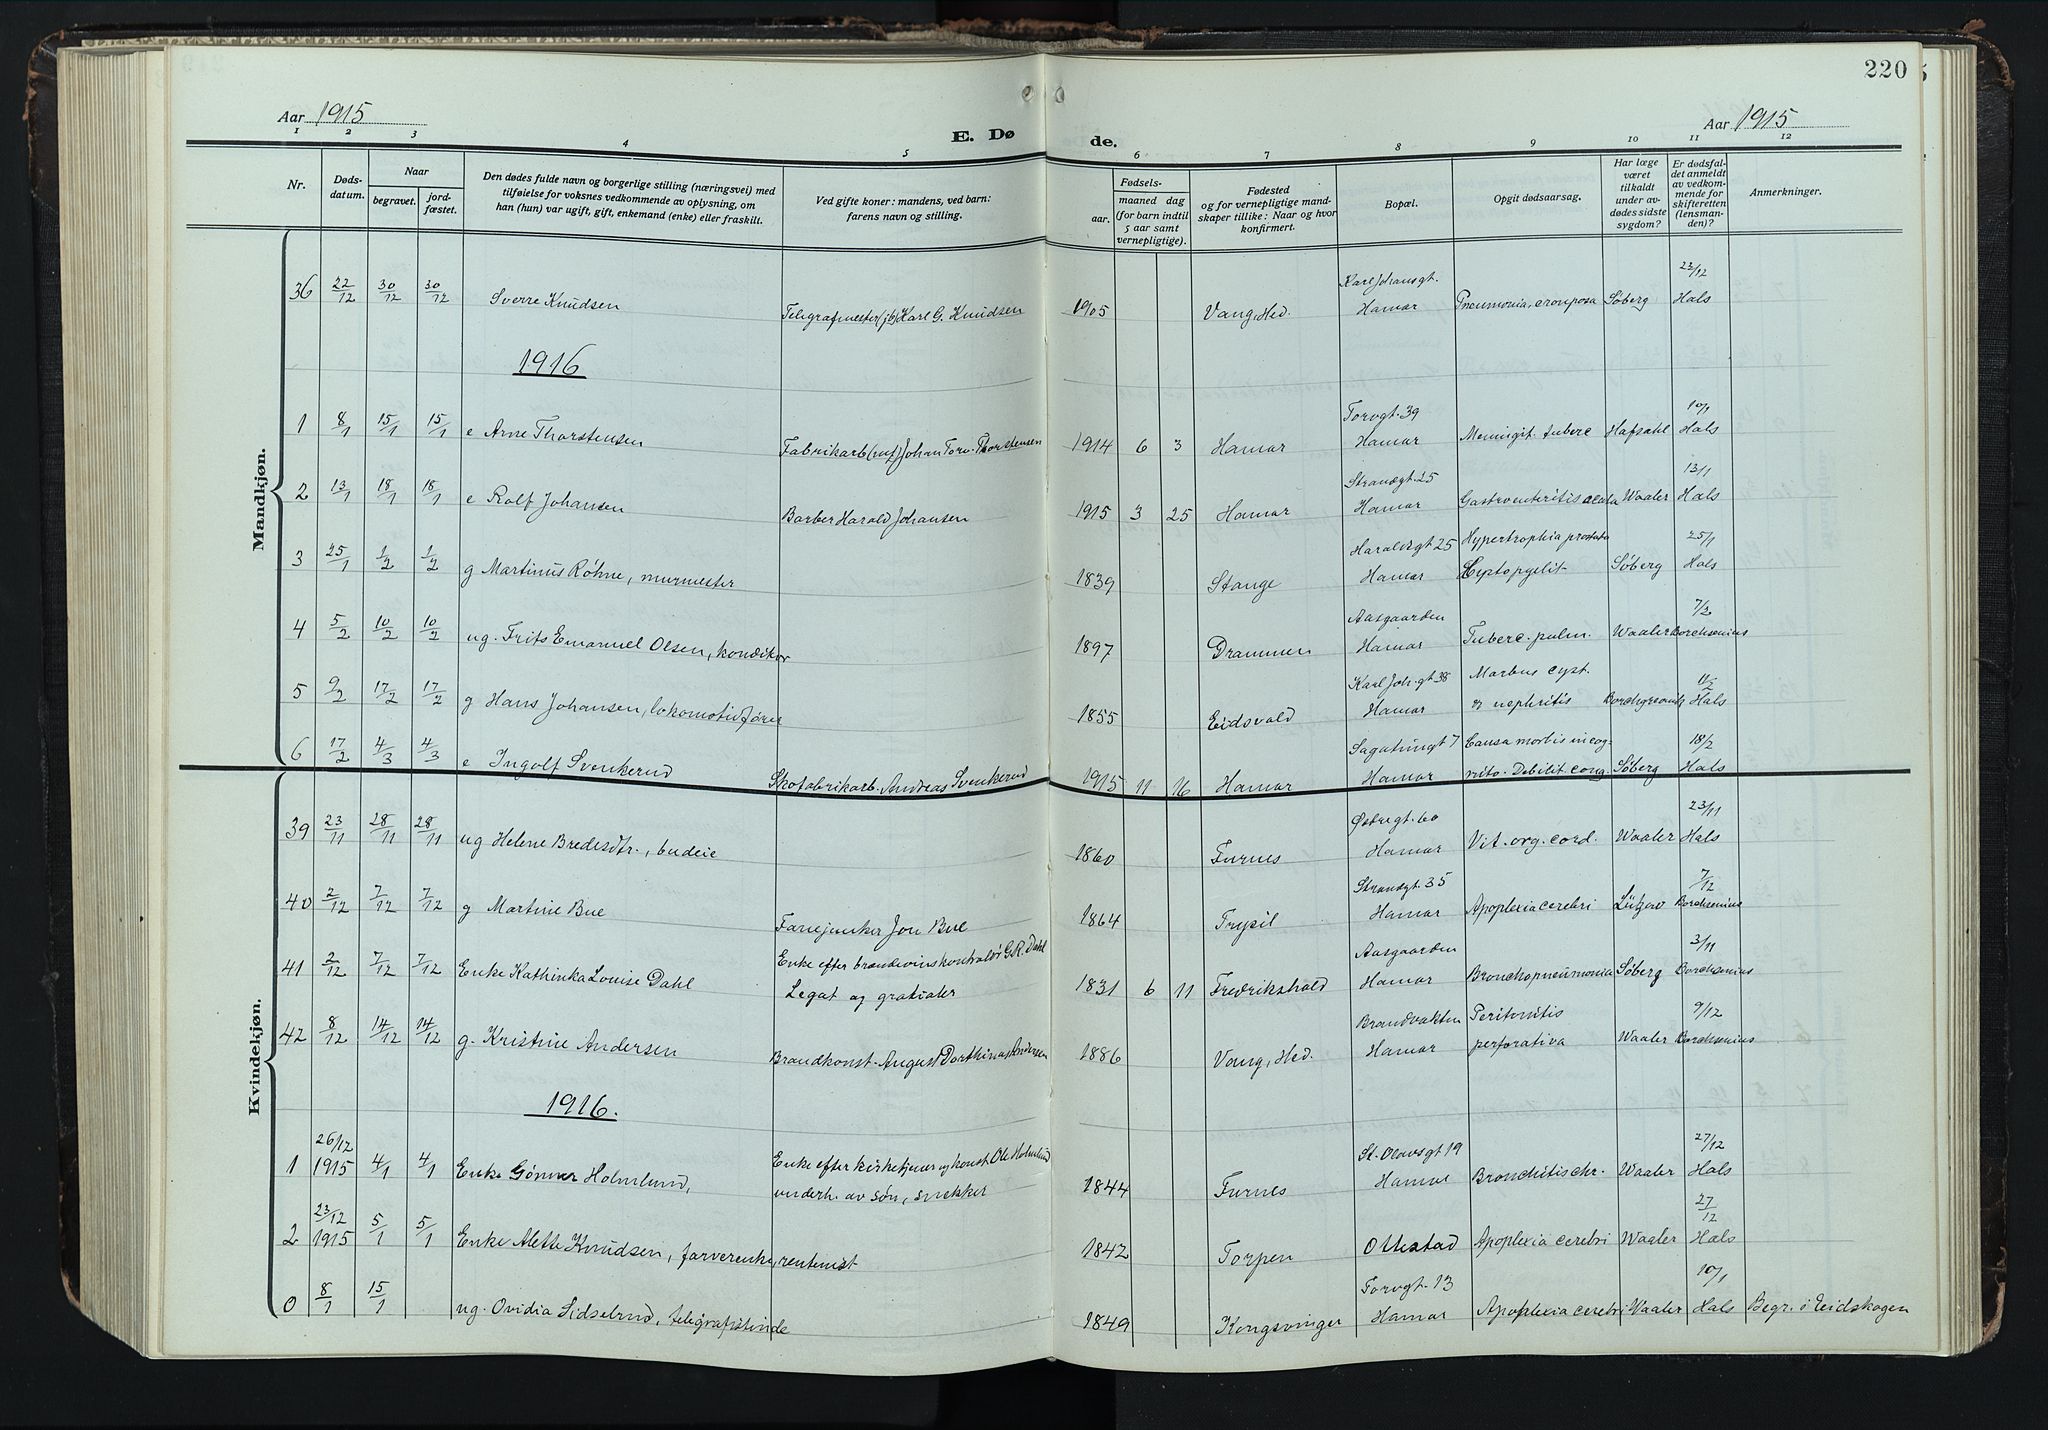 220
Aar 1915
Aar 1915
E. Dø
de.
1 2 3 4 5 6 7 8 9 10 11 12
Nr.
Døds-
datum.
Naar
begravet.
jord-
fæstet.
Den dødes fulde navn og borgerlige stilling (næringsvei) med
tilføielse for voksnes vedkommende av oplysning, om
han (hun) var ugift, gift, enkemand (enke) eller fraskilt.
Ved gifte koner: mandens, ved barn:
farens navn og stilling.
Fødsels-
aar.
maaned dag
(for barn indtil
5 aar samt
vernepligtige).
Fødested
og for vernepligtige mand-
skaper tillike: Naar og hvor
konfirmert.
Bopæl.
Opgit dødsaarsag.
Har læge
været
tilkaldt
under av-
dødes sidste
sygdom?
Er dødsfal-
det anmeldt
av vedkom-
mende for
skifteretten
(lensman-
den)?
Anmerkninger.
Mandkjøn.
36 22/12 30/12 30/12 Sverre Knudsen Telegrafmester (jb) Karl G. Knudsen 1905 Vang, Hed. Karl Johansgt. Hamar Pneumonia, crouposa Søberg 23/12 Hals
1916
1 8/1 15/1 15/1 e Arne Thorstensen Fabrikarb. Johan Torv. Thorstensen 1914 6 3 Hamar Torvgt. 39 Hamar Meningit. tuberc Hafsahl 10/1 Hals
2 13/1 18/1 18/1 e Rolf Johansen Barber Harald Johansen 1915 3 25 Hamar Strandgt. 25 Hamar Gastroenteritis acuta Waaler 13/1 Hals
3 25/1 1/2 1/2 g Martinus Røhne, murmester 1839 Stange Haraldsgt 25 Hamar Hypertrophia prostata Cystopyelit Søberg 25/1 Hals
4 5/2 10/2 10/2 ug. Frits Emanuel Olsen, konditor 1897 Drammen Aasgaarden Hamar Tuberc. pulm. Waaler 7/2 Borchsenius
5 9/2 17/2 17/2 g Hans Johansen, lokomotivfører 1855 Eidsvold Karl Joh. gt 38 Hamar Morbus cyst. og nephritis Borchgrevink 11/2 Hals
6 17/2 4/3 4/3 e Ingolf Svenkerud Skofabrikarb. Andreas Svenkerud 1915 11 16 Hamar Sagatungt 7 Hamar Causa mortis incog- nito. Debilit. cong. Søberg 18/2 Hals
Kvindekjøn.
39 23/11 28/11 28/11 ug Helene Bredesdtr., budeie 1860 Furnes Østregt. 60 Hamar Vit. org. cord. Waaler 23/11 Hals
40 2/12 7/12 7/12 g Martine Bue Fanejunker Jon Bue 1864 Trysil Strandgt. 35 Hamar Apoplexia cerebri Lützow 7/12 Borchsenius
41 2/12 7/12 7/12 Enke Kathinka Louise Dahl Enke efter brændevinskontrolør G.R. Dahl Legat og gratialer 1831 6 11 Fredrikshald Aasgaarden Hamar Bronchopneumonia Søberg 3/11 Borchsenius
42 8/12 14/12 14/12 g. Kristine Andersen Brandkonst. August Dorthinus Andersen 1886 Vang, Hed. Brandvakten Hamar Peritonitis perforativa Waaler 9/12 Borchsenius
1916.
1 26/12 1915 4/1 4/1 Enke Gønner Holmlund, Enke efter kirketjener og konst. Ole Holmlund underh. av søn, snekker 1844 Furnes St. Olavsgt 19 Hamar Bronchitis chr. Waaler 27/12 Hals
2 23/12 1915 5/1 5/1 Enke Alette Knudsen, farverenke, rentenist 1842 Torpen Ottestad Apoplexia cerebri Waaler 27/12 Hals
0 8/1 15/1 ug. Ovidia Lidselrud, telegrafistinde 1849 Kongsvinger Torvgt. 13 Hamar Apoplexia cerebri Waaler 10/1 Hals Begr. i Eidskogen